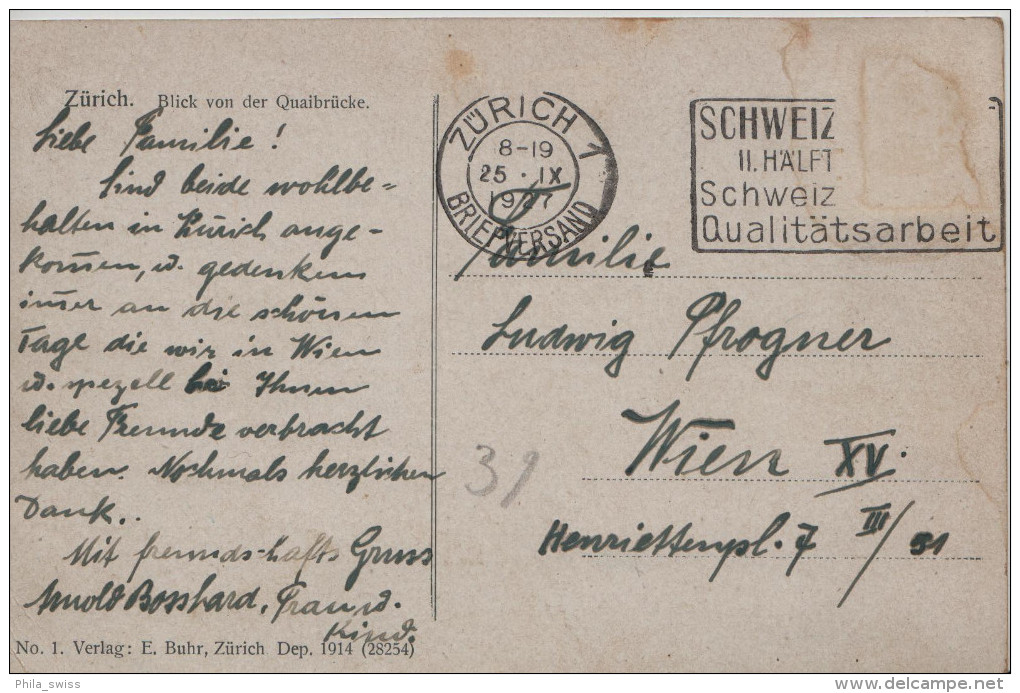 Zürich. Blick von der Quaibrücke.
Liebe Familie!
Sind beide wohlbe=
halten in Zürich ange-
kom̅en, u. gedenken
im̅er an die schönen
Tage die wir in Wien
u. spezell bei Ihnen
liebe Freunde verbracht
haben. Nochmals herzlichen
Dank..
Mit freundschafts Gruss
Arnold Bosshard, Frau u.
Kind.
No. 1. Verlag: E. Buhr, Zürich Dep. 1914 (28254)
ZÜRICH 1
8-19
25 · IX
1927
BRIEFVERSAND
SCHWEIZ
II. HÄLFT
Schweiz
Qualitätsarbeit
Familie
Ludwig Pfrogner
Wien XV.
Henriettenpl. 7 III/31
31
Phila_swiss
delcampe.net